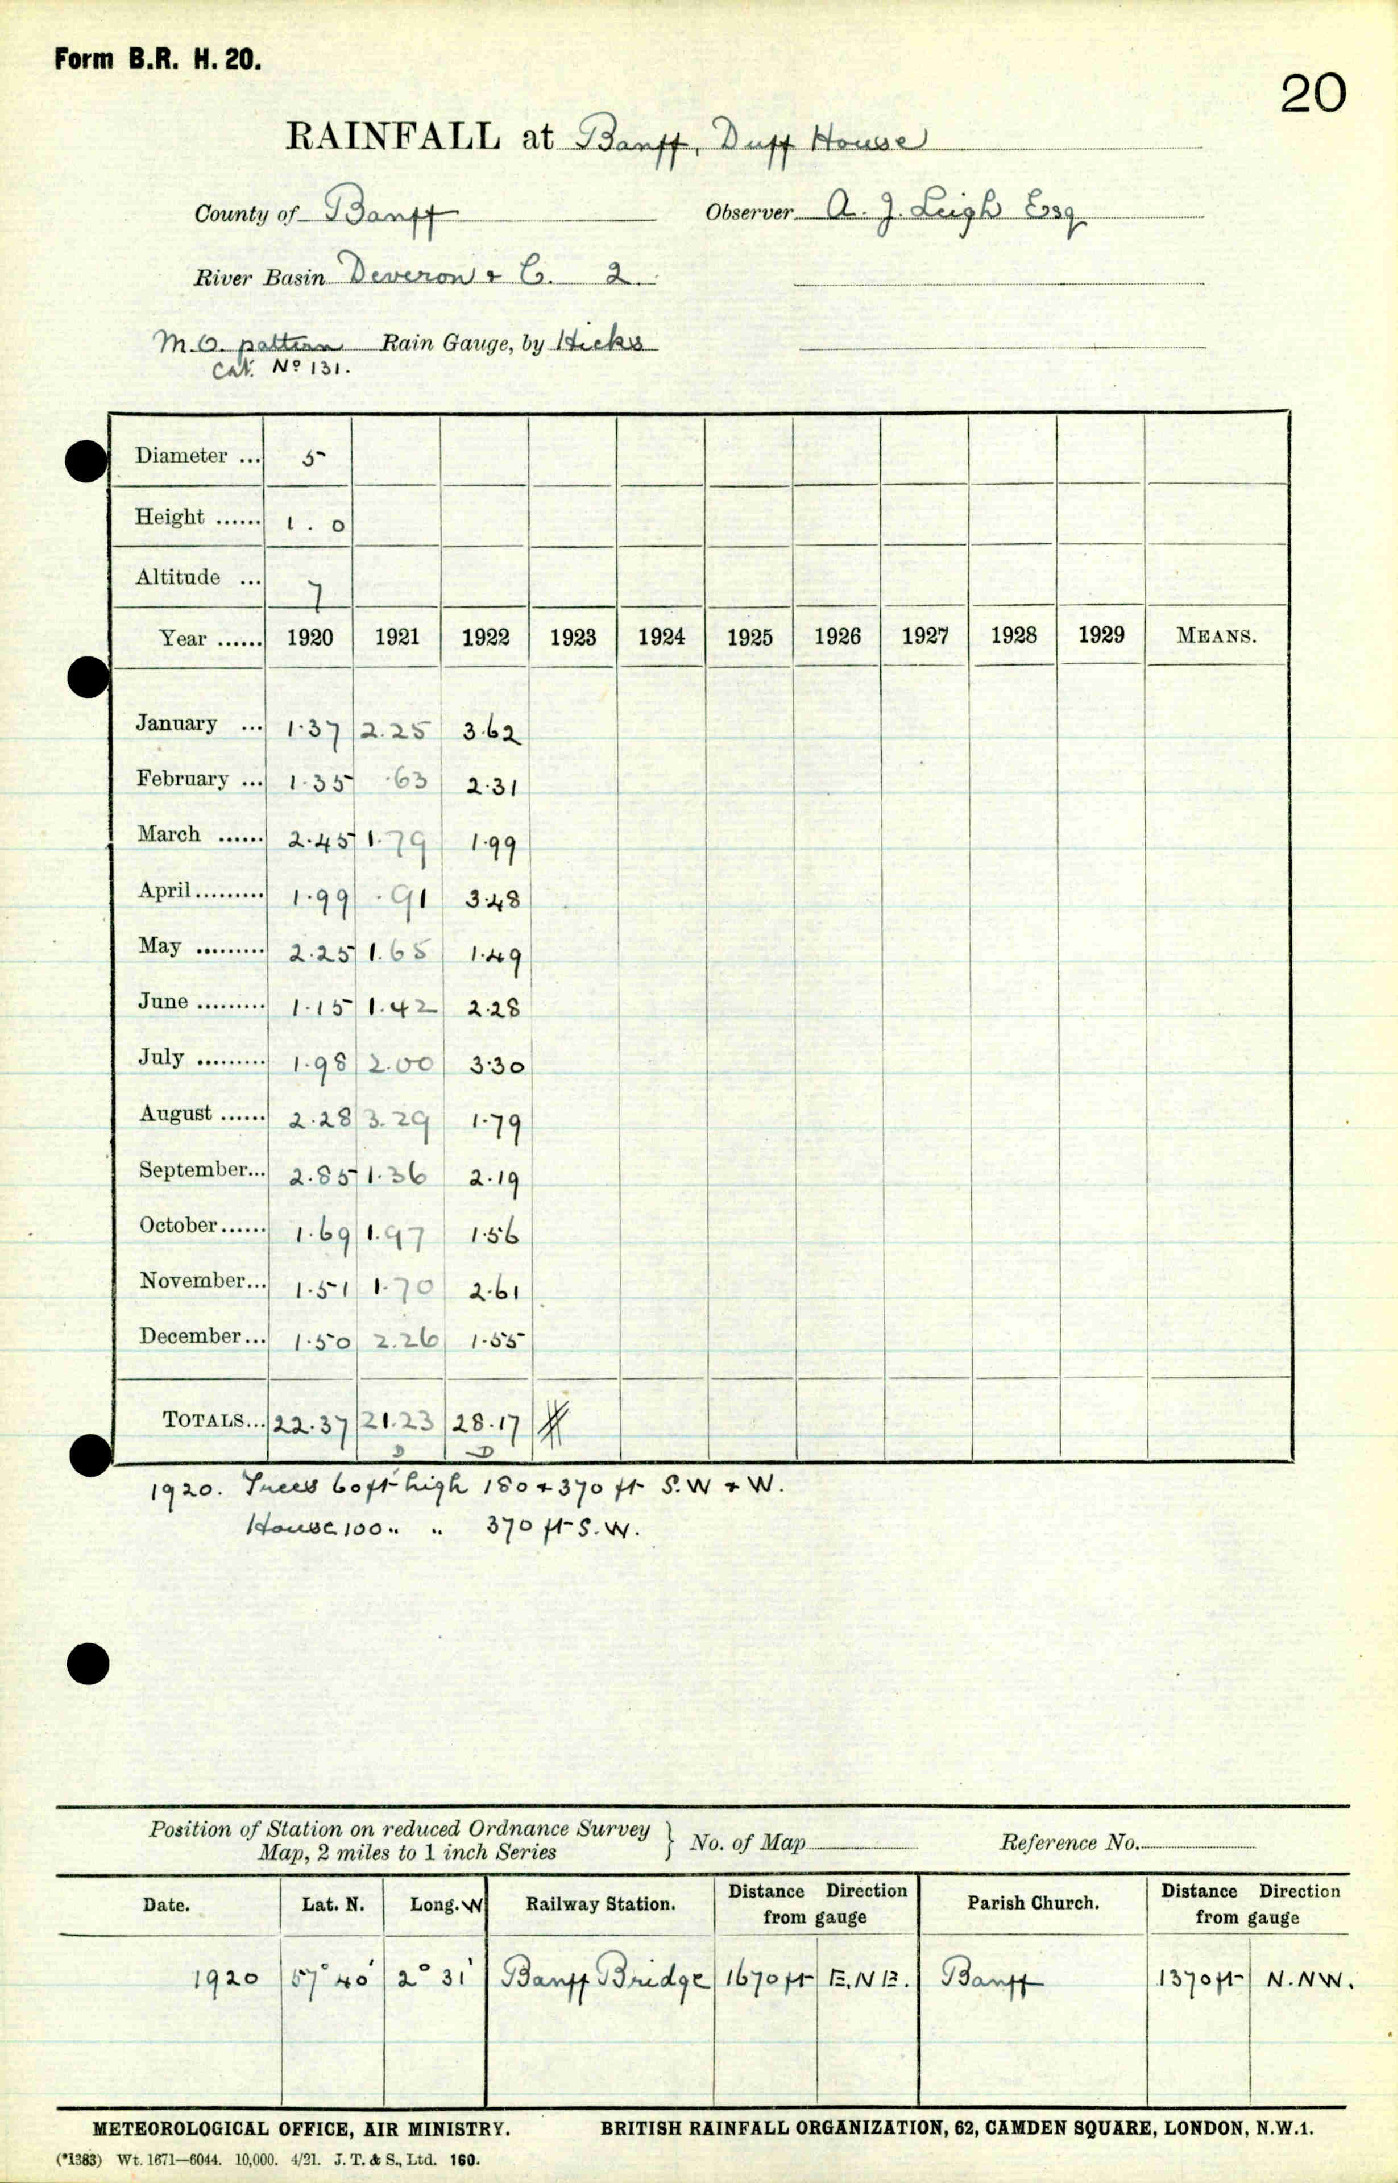 Form B.R. H. 20.
20
RAINFALL at Banff, Duff House
County of Banff Observer A. J. Leigh Esq
River Basin Deveron & C. 2.
M.O. pattern Rain Gauge, by Hicks
Cat. No 131.
Diameter ... 5
Height ...... 1.0
Altitude ... 7
Year ...... 1920 1921 1922 1923 1924 1925 1926 1927 1928 1929 MEANS.
January ... 1.37 2.25 3.62
February ... 1.35 .63 2.31
March ...... 2.45 1.79 1.99
April......... 1.99 .91 3.48
May ......... 2.25 1.65 1.49
June ......... 1.15 1.42 2.28
July ......... 1.98 2.00 3.30
August ...... 2.28 3.29 1.79
September... 2.85 1.36 2.19
October...... 1.69 1.97 1.56
November... 1.51 1.70 2.61
December... 1.50 2.26 1.55
TOTALS... 22.37 21.23 28.17
D D
1920. Trees 60 ft high 180 & 370 ft S.W & W.
House 100 " " 370 ft S.W.
Position of Station on reduced Ordnance Survey
Map, 2 miles to 1 inch Series } No. of Map Reference No.
Date. Lat. N. Long. W Railway Station. Distance Direction from gauge Parish Church. Distance Direction from gauge
1920 57° 40' 2° 31' Banff Bridge 1670 ft E.N.E. Banff 1370 ft N.NW.
METEOROLOGICAL OFFICE, AIR MINISTRY. BRITISH RAINFALL ORGANIZATION, 62, CAMDEN SQUARE, LONDON, N.W.1.
(*1383) Wt. 1671—6044. 10,000. 4/21. J. T. & S., Ltd. 160.